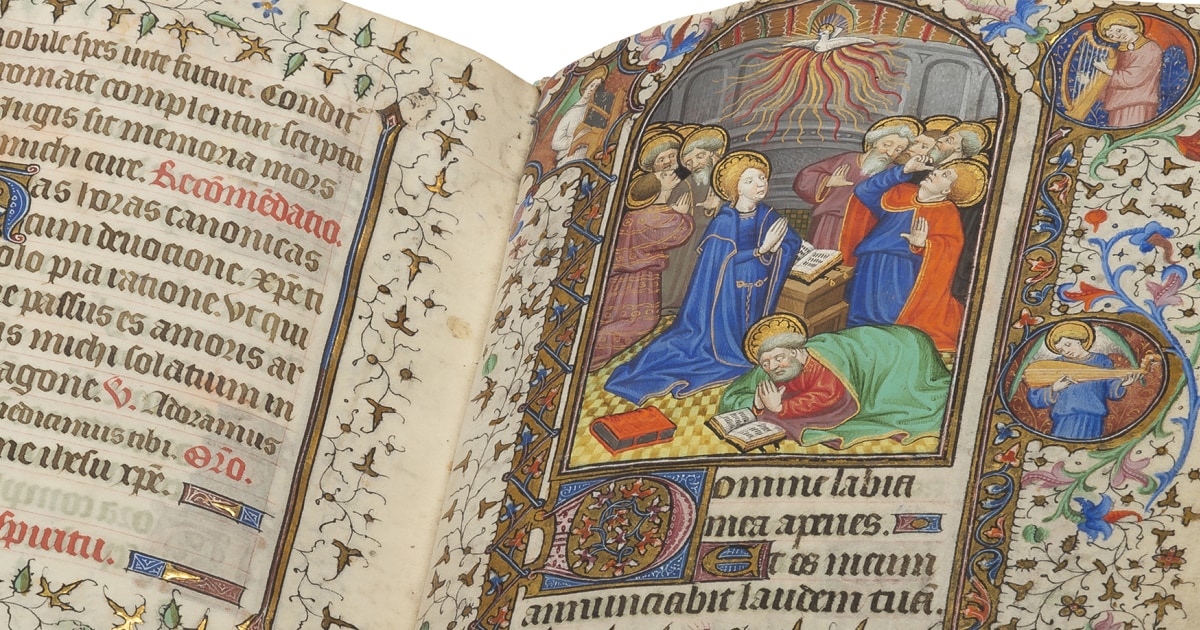 nobile spes unte future. Condit
romate complentur scriptu
Iugis sit memoria mors
michi cure. Recōmēdatio.
as horas canonicas
cum deuocione. xpe ti
olo pia ratione. Vt qui
e passus es amoris ar
is michi solatium in
agone. V. Adoramus
nedicimus tibi. Oro.
ne ihesu xpē.
spiritu.
Domine labia
mea aperies.
Et os meum
annunciabit laudem tuā.